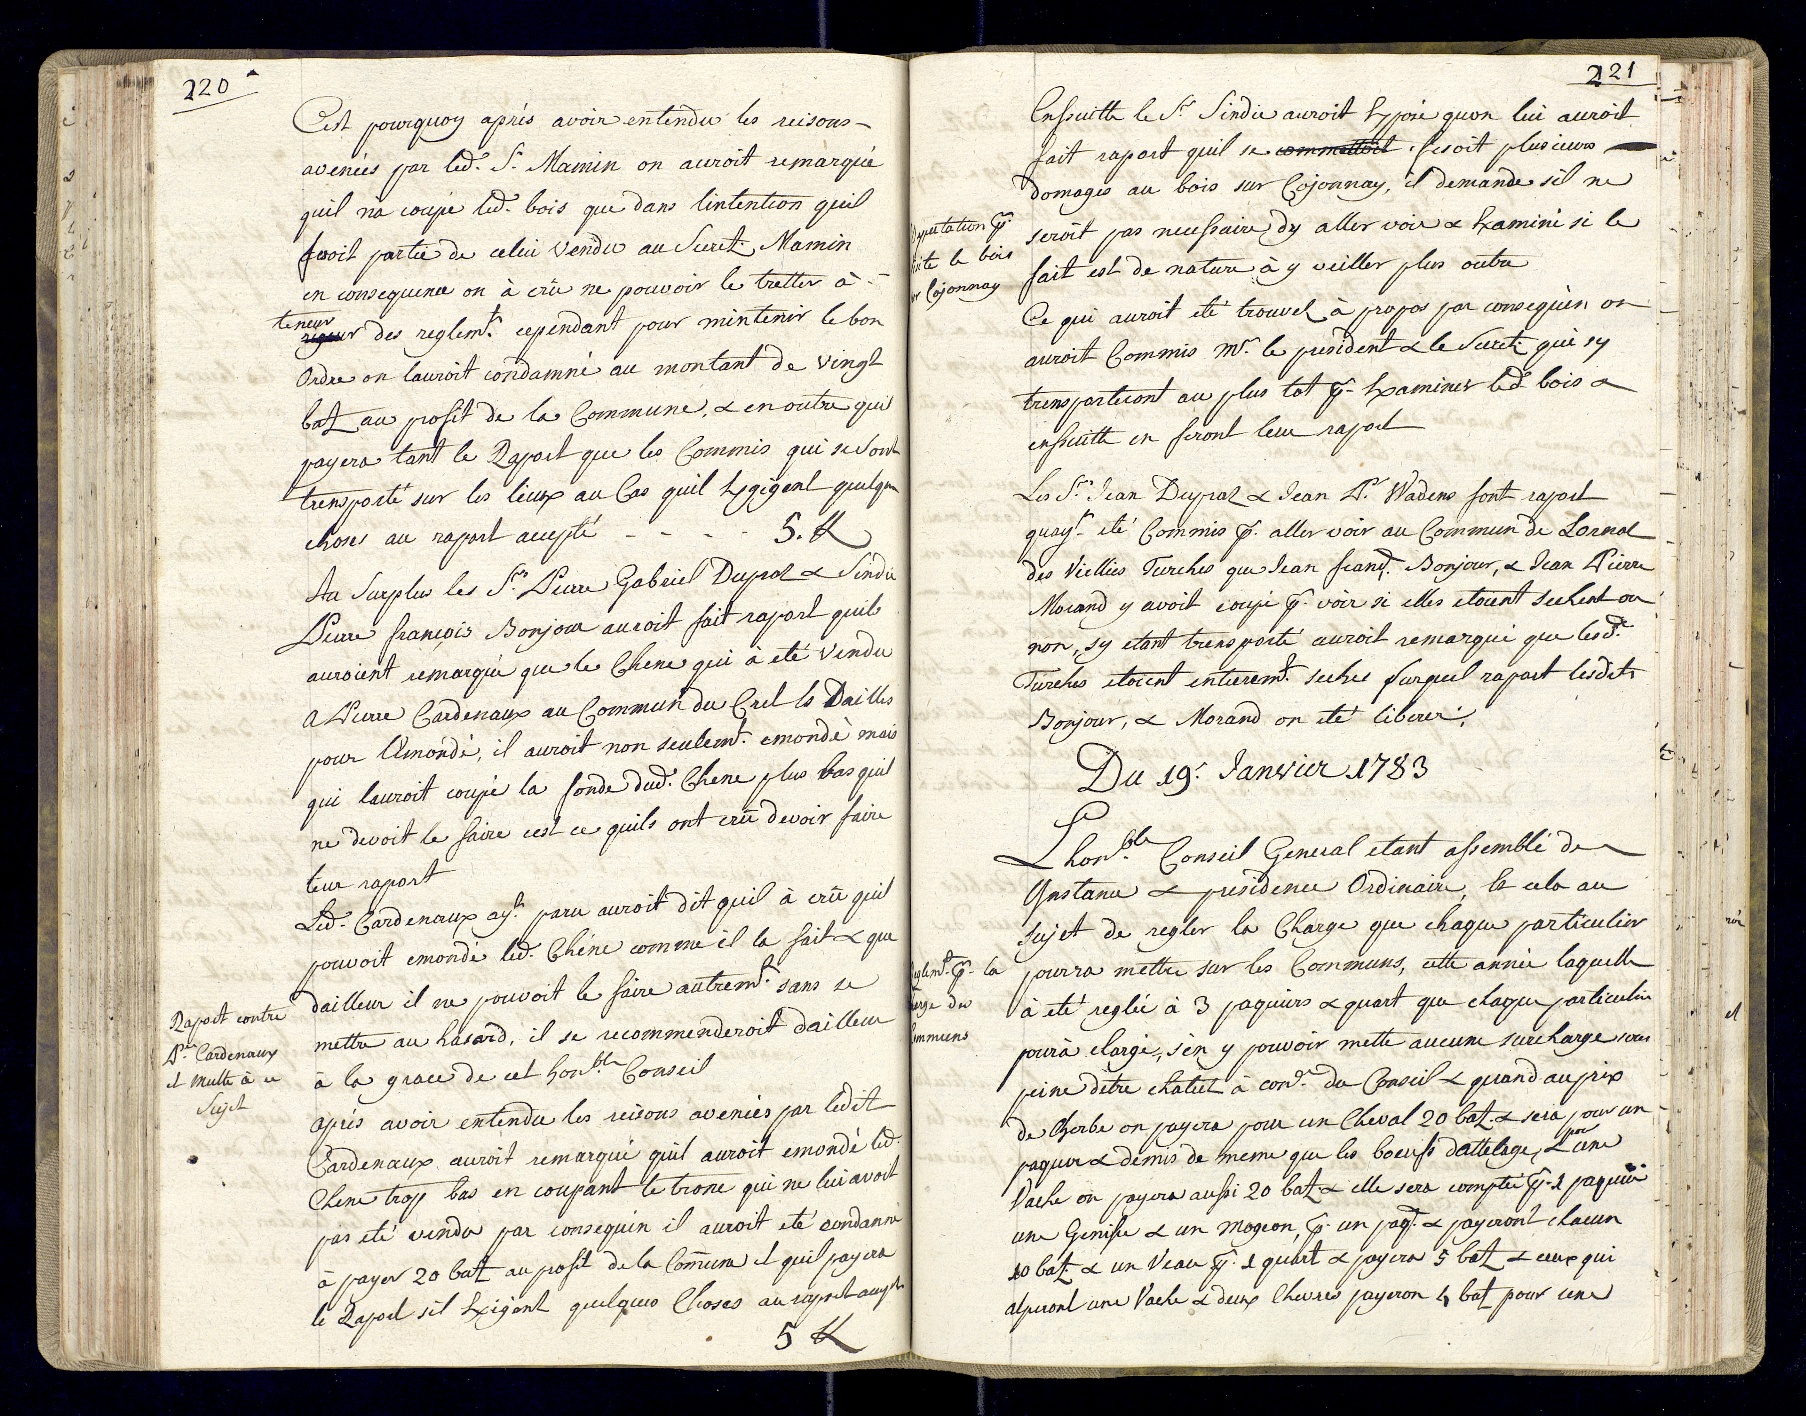 220
C'est pourquoy aprés avoir entendu les reisons
avenées par led. Sr. Mamin on auroit remarqué
quil n'a coupé led. bois que dans lintention quil
fusoit partie de celui vendu au Secret. Mamin
en consequence on à crû ne pouvoir le tretter à
teneur
rigeur des reglemt. cependant pour mintenir le bon
Ordre on lauroit condamné au montant de vingt
batz au profit de la Commune, & en outre quil
payera tant le Raport que les Commis qui se sont
trensporté sur les lieux au Cas quil Exgigent quelque
choses au raport accepté - - - - 5. ß
Au Surplus les Srs. Pierre Gabriel Dupraz & Sindic
Pierre françois Bonjour auroit fait raport quils
auroient remarqué que le Chene qui à eté vendu
a Pierre Cardenaux au Commun du Cret ls Dailles
pour l'Emondé, il auroit non seulemt. emondé mais
qui lauroit coupé la fonde dud. Chene plus bas quil
ne devoit le faire cest ce quils ont crû devoir faire
leur raport
Led. Cardenaux ayt. paru auroit dit quil à crû quil
pouvoit emondé led. Chéne comme il la fait & que
dailleur il ne pouvoit le faire autremt. sans se
mettre au hasard, il se recommenderoit dailleur
à la grace de cet honble. Conseil
Raport contre
Pre. Cardenaux
et multe à ce
Sujet
aprés avoir entendu les reisons avenées par ledit
Cardenaux auroit remarqué quil auroit emondé led.
Chene trop bas en coupant le tronc qui ne lui avoit
pas eté vendu par consequen il auroit eté condanné
à payer 20 batz au profit de la Comune et quil payera
le Raport sil Exigent quelques Choses au raport accepté
5 ß
221
Ensuitte le Sr. Sindic auroit Exposé quon lui auroit
fait raport quil se commettoit fesoit plusieurs
domages au bois sur Cojonnay, il demande sil ne
seroit pas necessaire dy aller voir & Examiné si le
fait est de nature à y veiller plus outre
Deputation p.
site le bois
ur Cojonnay
Ce qui auroit eté trouvé à propos par conseqüen on
auroit Commis Mr. le president & le Secret. qui sy
trensporteront au plus tot p. Examiner led. bois &
ensuitte en feront leur raport
Les Srs. Jean Dupraz & Jean Pr. Wadens font raport
quayt. eté Commis p. aller voir au Commun de Lornat
des Viellies Furches que Jean frand. Bonjour, & Jean Pierre
Morand y avoit coupé p. voir si elles etoient sechent ou
non, sy etant trensporté auroit remarqué que lesd.
Furches etoient entieremt. seches surquel raport lesdits
Bonjour, & Morand on eté liberé.
Du 19e. Janvier 1783
Lhonble. Conseil General etant assemblé de
Instance & presidence Ordinaire, & cela au
Sujet de regler la Charge que chaque particulier
pourra mettre sur les Communs, cette année laquelle
à eté reglée à 3 paquiers & quart que chaque particulier
reglemt. p. la
arge des
ommuns
pourà chargé, s'en y pouvoir mette aucune surcharge sous
peine dêtre chatié à cone. du Conseil & quand au prix
de lherbe on payera pour un Cheval 20 batz & sera pour un
paquier & demis de meme que les boeufs dattelage, & pour une
Vache on payera aussi 20 batz & elle sera comptée p. 1 paquier
une Genisse & un mogeon, p. un paqr. & payeront chacun
10 batz & un Veau p. 1 quart & payera 5 batz & ceux qui
alperont une Vache & deux Chevres payeron 4 batz pour une